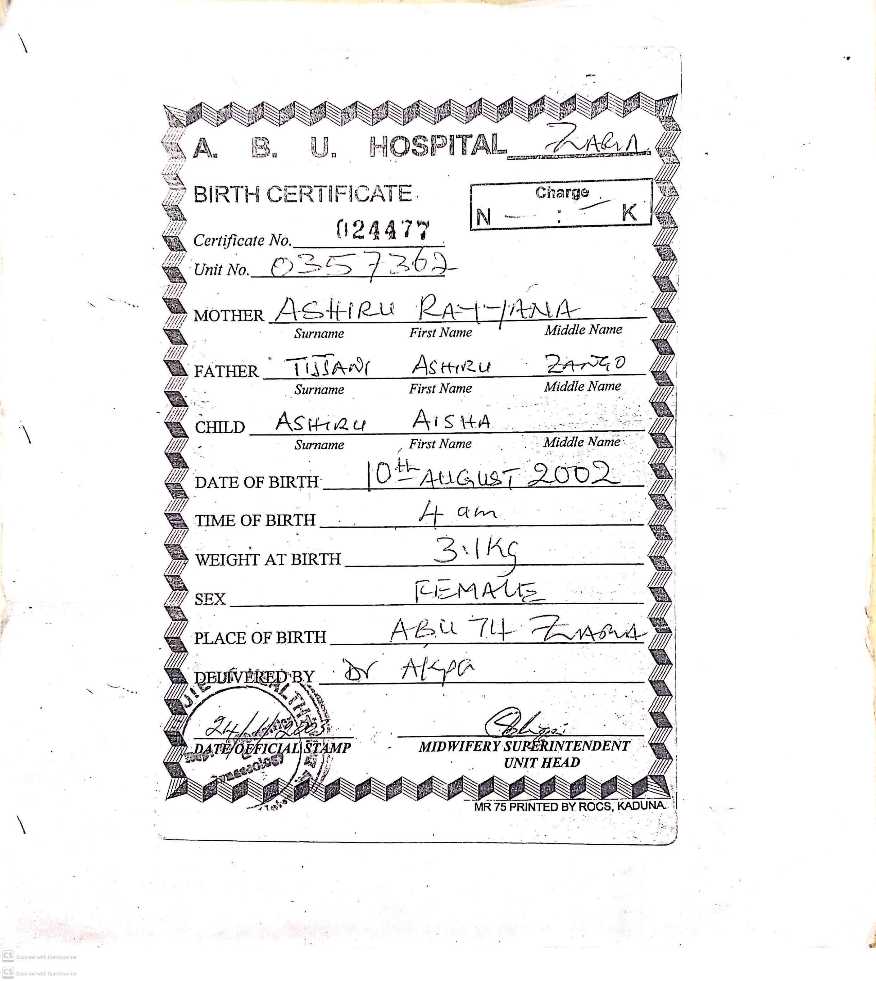 A. B. U. HOSPITAL ZARIA.
BIRTH CERTIFICATE
Charge
N — : — K
Certificate No. 024477
Unit No. 0357362
MOTHER ASHIRU RAYYANA
Surname First Name Middle Name
FATHER TIJJANI ASHIRU ZANGO
Surname First Name Middle Name
CHILD ASHIRU AISHA
Surname First Name Middle Name
DATE OF BIRTH 10th AUGUST 2002
TIME OF BIRTH 4 am
WEIGHT AT BIRTH 3.1Kg
SEX FEMALE
PLACE OF BIRTH ABU TH ZARIA
DELIVERED BY Dr
DATE/OFFICIAL STAMP MIDWIFERY SUPERINTENDENT
UNIT HEAD
MR 75 PRINTED BY ROCS, KADUNA.